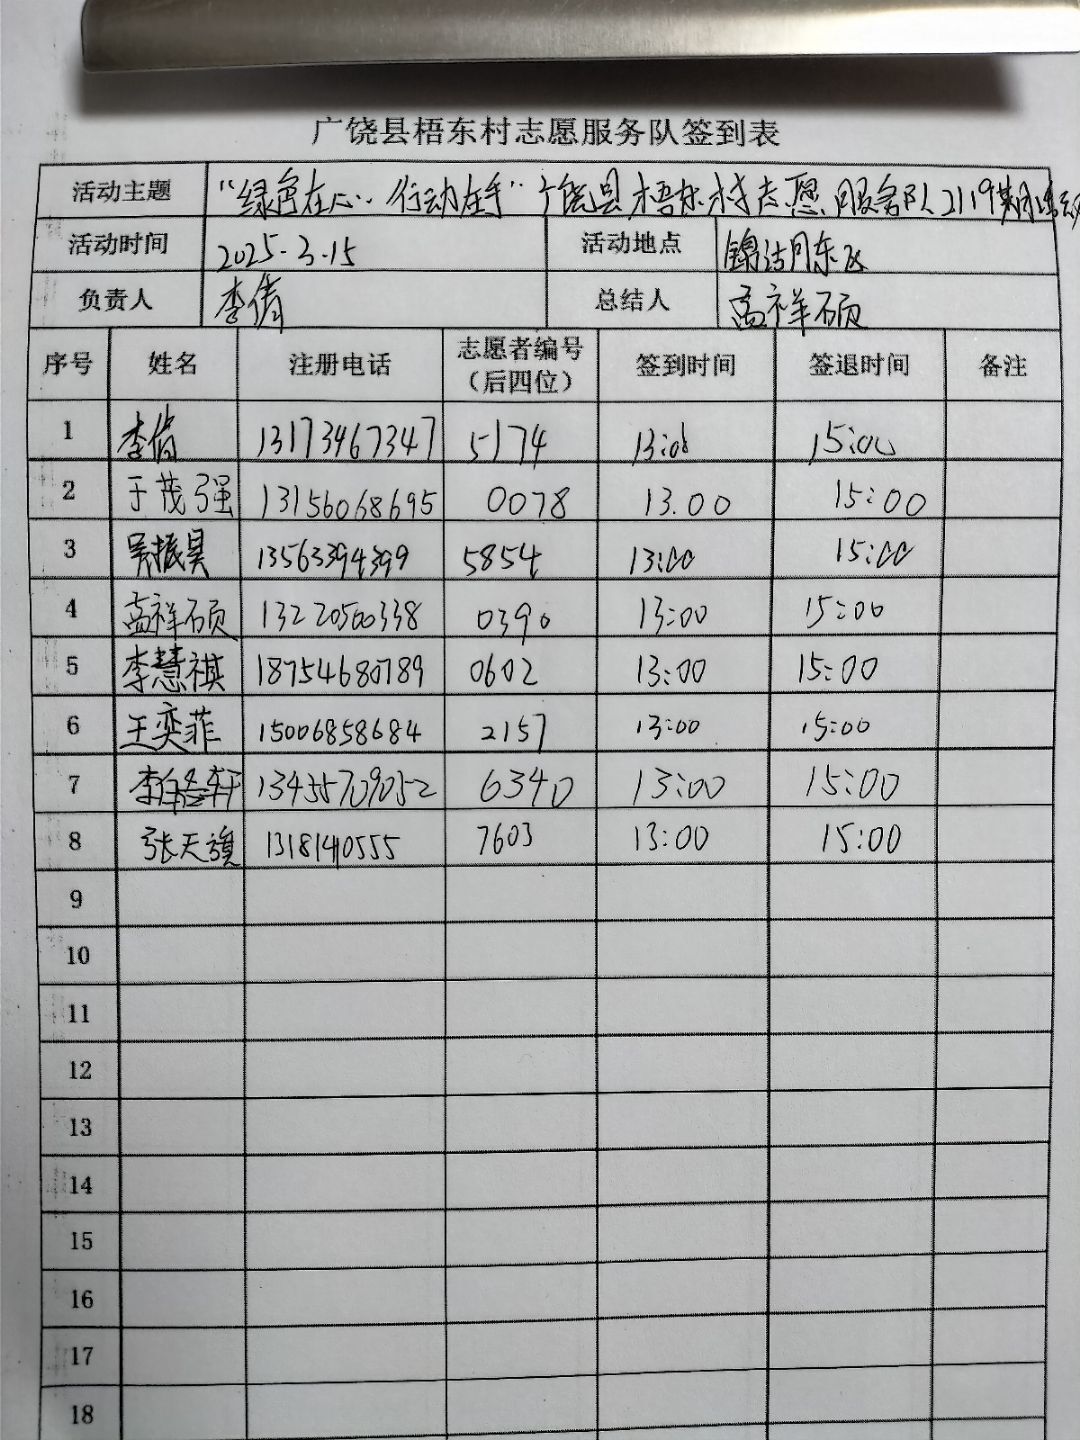 广饶县梧东村志愿服务队签到表
活动主题 "绿色在心，行动在手"广饶县梧东村志愿服务队2119期
活动时间 2025.3.15 活动地点 锦洁月东区
负责人 李倩 总结人 孟祥硕
序号 姓名 注册电话 志愿者编号（后四位） 签到时间 签退时间 备注
1 李倩 13173467347 5174 13:00 15:00
2 于茂强 13156068695 0078 13.00 15:00
3 吴振昊 13563394399 5854 13:00 15:00
4 孟祥硕 13220560338 0390 13:00 15:00
5 李慧祺 18754680789 0602 13:00 15:00
6 王奕菲 15006858684 2157 13:00 15:00
7 李轩 13455709052 6340 13:00 15:00
8 张天旗 1318140555 7603 13:00 15:00
9
10
11
12
13
14
15
16
17
18